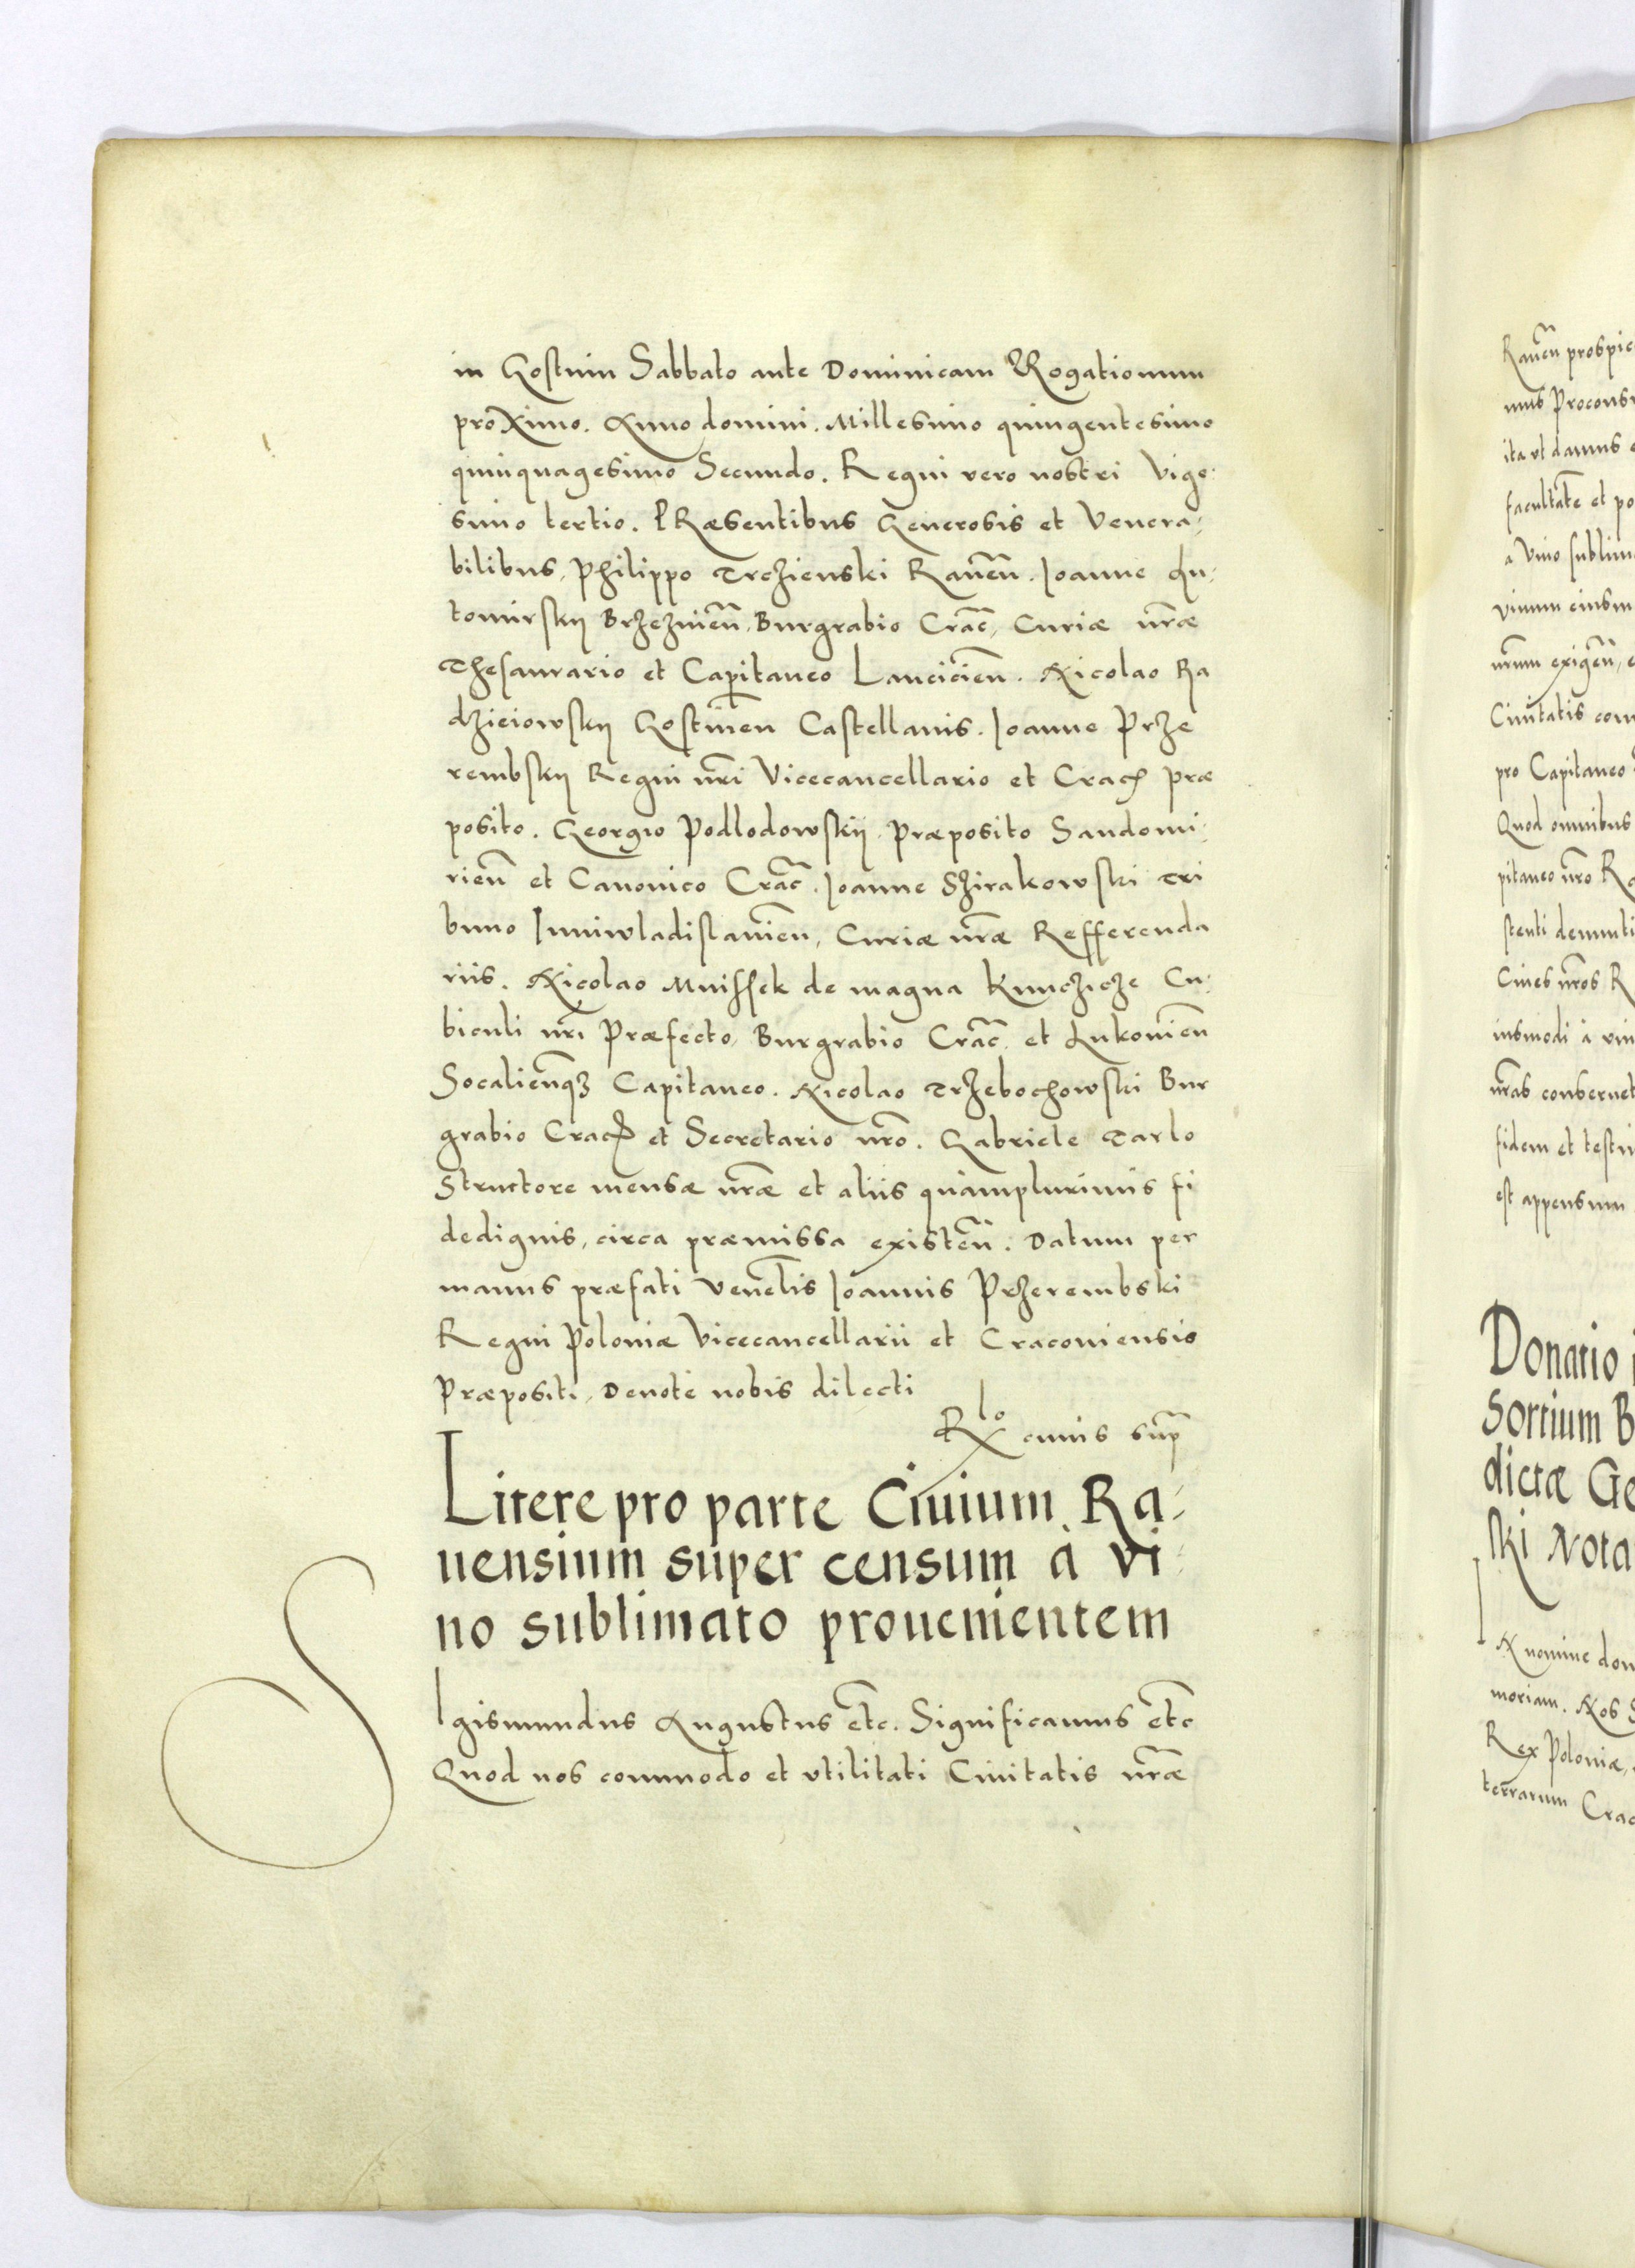 in Gostnin Sabbato ante Dominicam Rogationum
proximo. Anno domini. Millesimo quingentesimo
quinquagesimo Secundo. Regni vero nostri Vige:
simo tertio. PRæsentibus Generosis et Venera,
bilibus, Philippo Trczienski Raueñ. Joanne Lu,
tomirskij Brzezinieñ, Burgrabio Crac̃, Curiæ nr̃æ
Thesaurario et Capitaneo Lancicieñ. Nicolao Ra
dzieiowskij Gostineñ Castellanis. Joanne Prze
rembskij Regni nr̃i Vicecancellario et Crac̃ Præ
posito. Georgio Podlodowskij Præposito Sandomi,
rieñ et Canonico Crac̃. Joanne Szirakowski Tri
buno Iuniwladislauieñ, Curiæ nr̃æ Refferenda
riis. Nicolao Mnissek de magna Kunczicze Cu,
biculi nr̃i Præfecto, Burgrabio Crac̃ et Lukouieñ
Socalieñq3 Capitaneo. Nicolao Trzebochowski Bur
grabio Crac̃ et Secretario nr̃o. Gabriele Tarlo
Structore mensæ nr̃æ et aliis quamplurimis fi
dedignis, circa præmissa existeñ. Datum per
manus præfati Veneb̃lis Joannis Przerembski
Regni Poloniæ Vicecancellarii et Cracouiensis
Præpositi, Deuote nobis dilecti
Rlo cuius sup̃
Litere pro parte Ciuium Ra,
uensium super censum à vi,
no sublimato prouenientem
SIgismundus Augustus etc̃. Significamus etc̃
Quod nos commodo et vtilitati Ciuitatis nr̃æ
Raueñ prospic
mus Procons
ita vt damus
facultate et po
a Vino sublim
vinum eiusm
nr̃um exigeñ,
Ciuitatis com
pro Capitaneo
Quod omnibus
pitaneo nr̃o Ra
stenti denunti
Ciues nr̃os R
iusmodi à vin
nr̃as conseruet
fidem et testi
est appensum
Donatio
Sortium B
dictæ Ge
ski Nota
IN nomine dom
moriam. Nos S
Rex Poloniæ,
terrarum Crac